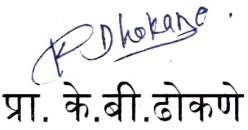 KDhokane.
प्रा. के.बी.ढोकणे